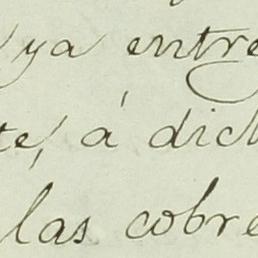 ya entre
te, á dich
las cobre